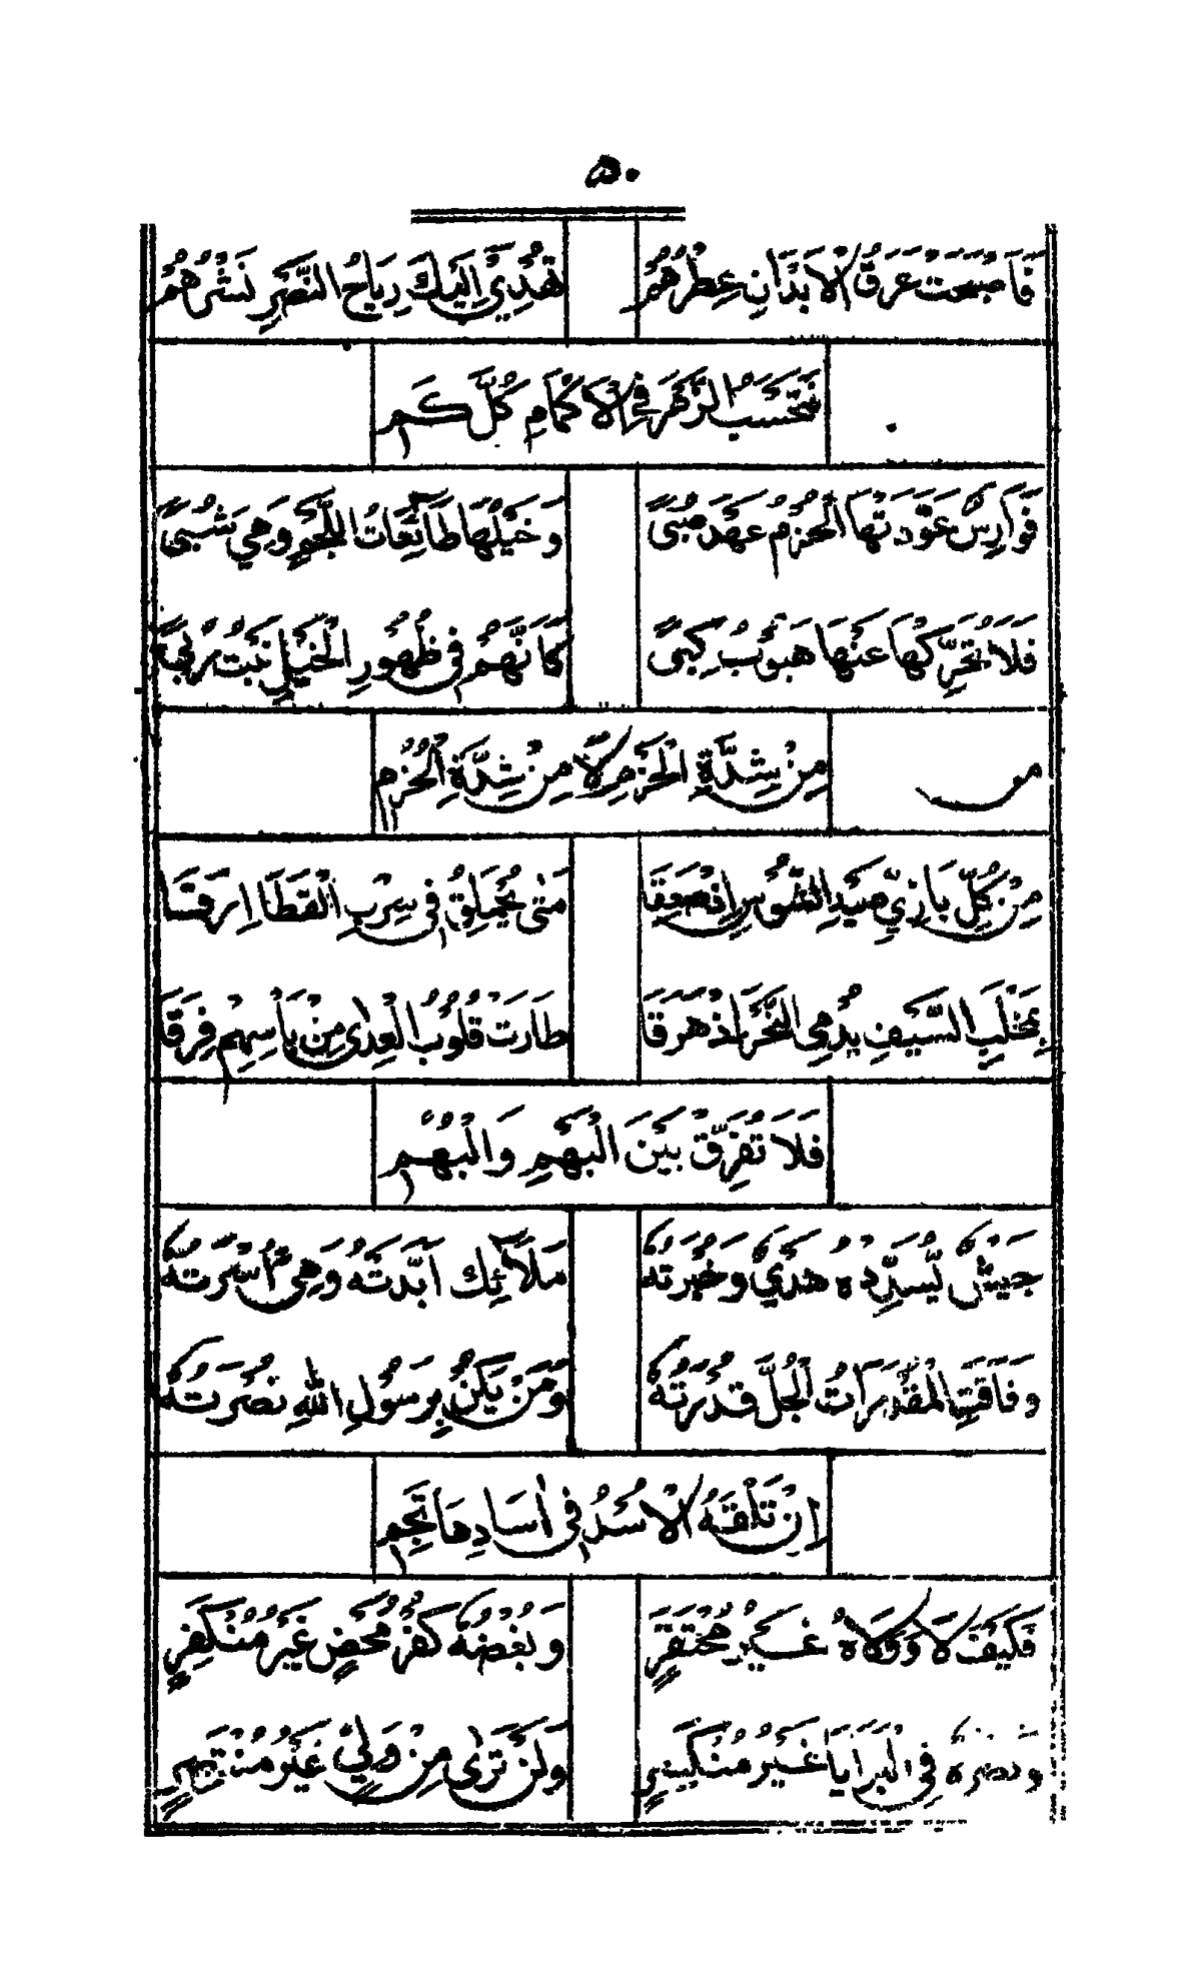 ٥٠
فَاَصْبَحَتْ عَرَقُ الْاَبْدَانِ عِطْرُهُمُ تُهْدِيْ اِلَيْكَ رِيَاحُ النَّصْرِ نَشْرَهُمُ
فَتَحْسَبُ الزَّهْرَ فِي الْاَكْمَامِ كُلَّ كَمٖ
فَوَارِسٌ عَوَّدَتْهَا الْحُزْمُ عَهْدَ صُبًى وَخَيْلُهَا طَائِعَاتُ اللُّجْمِ وَهِيَ شُبًى
فَلَا تُحَرِّكُهَا عَنْهَا هَبُوْبُ كِبًى كَاَنَّهُمْ فِى ظُهُوْرِ الْخَيْلِ نَبْتُ رُبًى
مِنْ شِدَّةِ الْحَزْمِ لَا مِنْ شِدَّةِ الْحُزُمٖ من
مِنْ كُلِّ بَازِيِّ صَيْدِ الشُّوْسِ اِذْ صَعِقَا مَتٰى يُحَمْلِقُ فِى سِرْبِ الْقَطَا ارَقَا
بِمِخْلَبِ السَّيْفِ يُدْمِى النَّحْرَ اِذْ هَرَقَا طَارَتْ قُلُوْبُ الْعِدٰى مِنْ بَاْسِهِمْ فِرَقَا
فَلَا تُفَرِّقُ بَيْنَ الْبَهْمِ وَالْبُهُمٖ
جَيْشٌ يُسَدِّدُهُ هُدًى وَخُبْرَتُهُ مَلَائِكٌ اَيَّدَتْهُ وَهِىَ اُسْرَتُهُ
وَفَاقَتِ الْمَقْدَرَاتُ الْجُلَّ قُدْرَتُهُ وَمَنْ يَكُنْ بِرَسُوْلِ اللّٰهِ نُصْرَتُهُ
اِنْ تَلْقَهُ الْاُسْدُ فِى اٰسَادِهَا تَجِمٖ
فَكَيْفَ لَا وَوَلَاهُ غَيْرُ مُحْتَقَرٍ وَبُغْضُهُ كُفْرُ مَحْضٍ غَيْرُ مُنْكَفِرٍ
وَنَصْرُهُ فِى الْبَرَايَا غَيْرُ مُنْكَسِرٍ وَلَنْ تَرٰى مِنْ وَلِيٍّ غَيْرَ مُنْتَصِرٍ